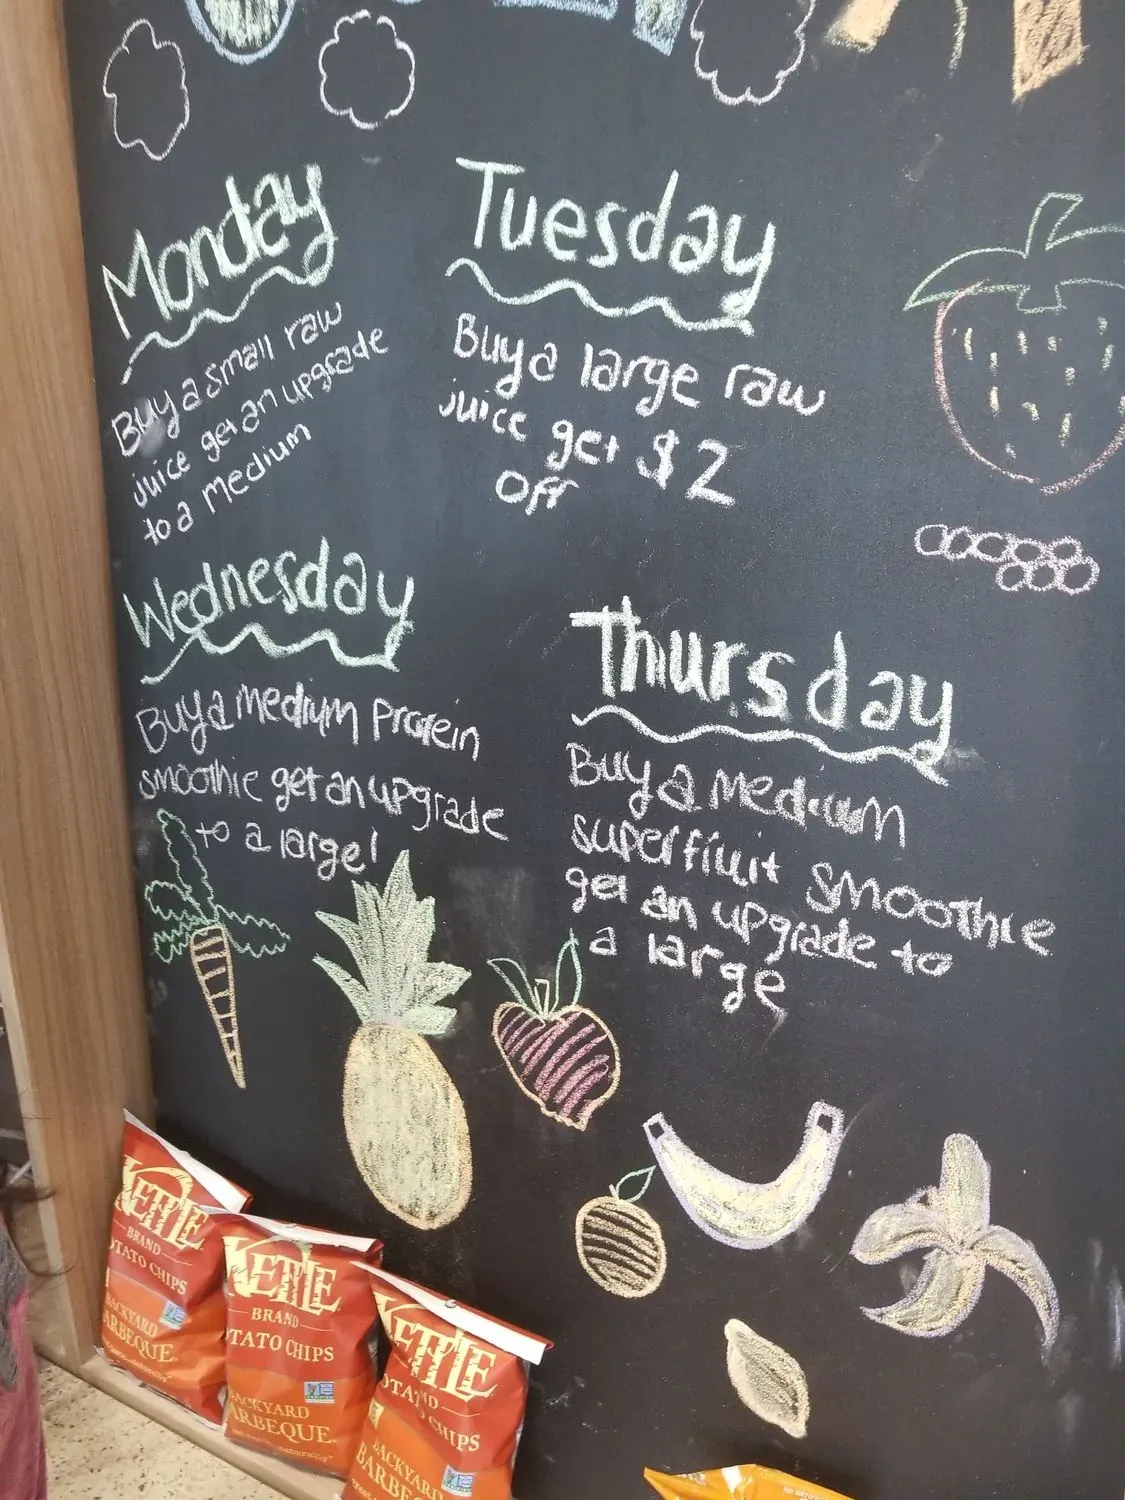 Monday
Buy a small raw
juice get an upgrade
to a medium
Tuesday
Buy a large raw
juice get $2
Off
Wednesday
Buy a medium Protein
smoothie get an upgrade
to a large!
Thursday
Buy a medium
superfruit smoothie
get an upgrade to
a large
KETTLE
BRAND
POTATO CHIPS
BACKYARD
BARBEQUE
KETTLE
BRAND
POTATO CHIPS
BACKYARD
BARBEQUE
KETTLE
BRAND
POTATO CHIPS
BACKYARD
BARBEQUE